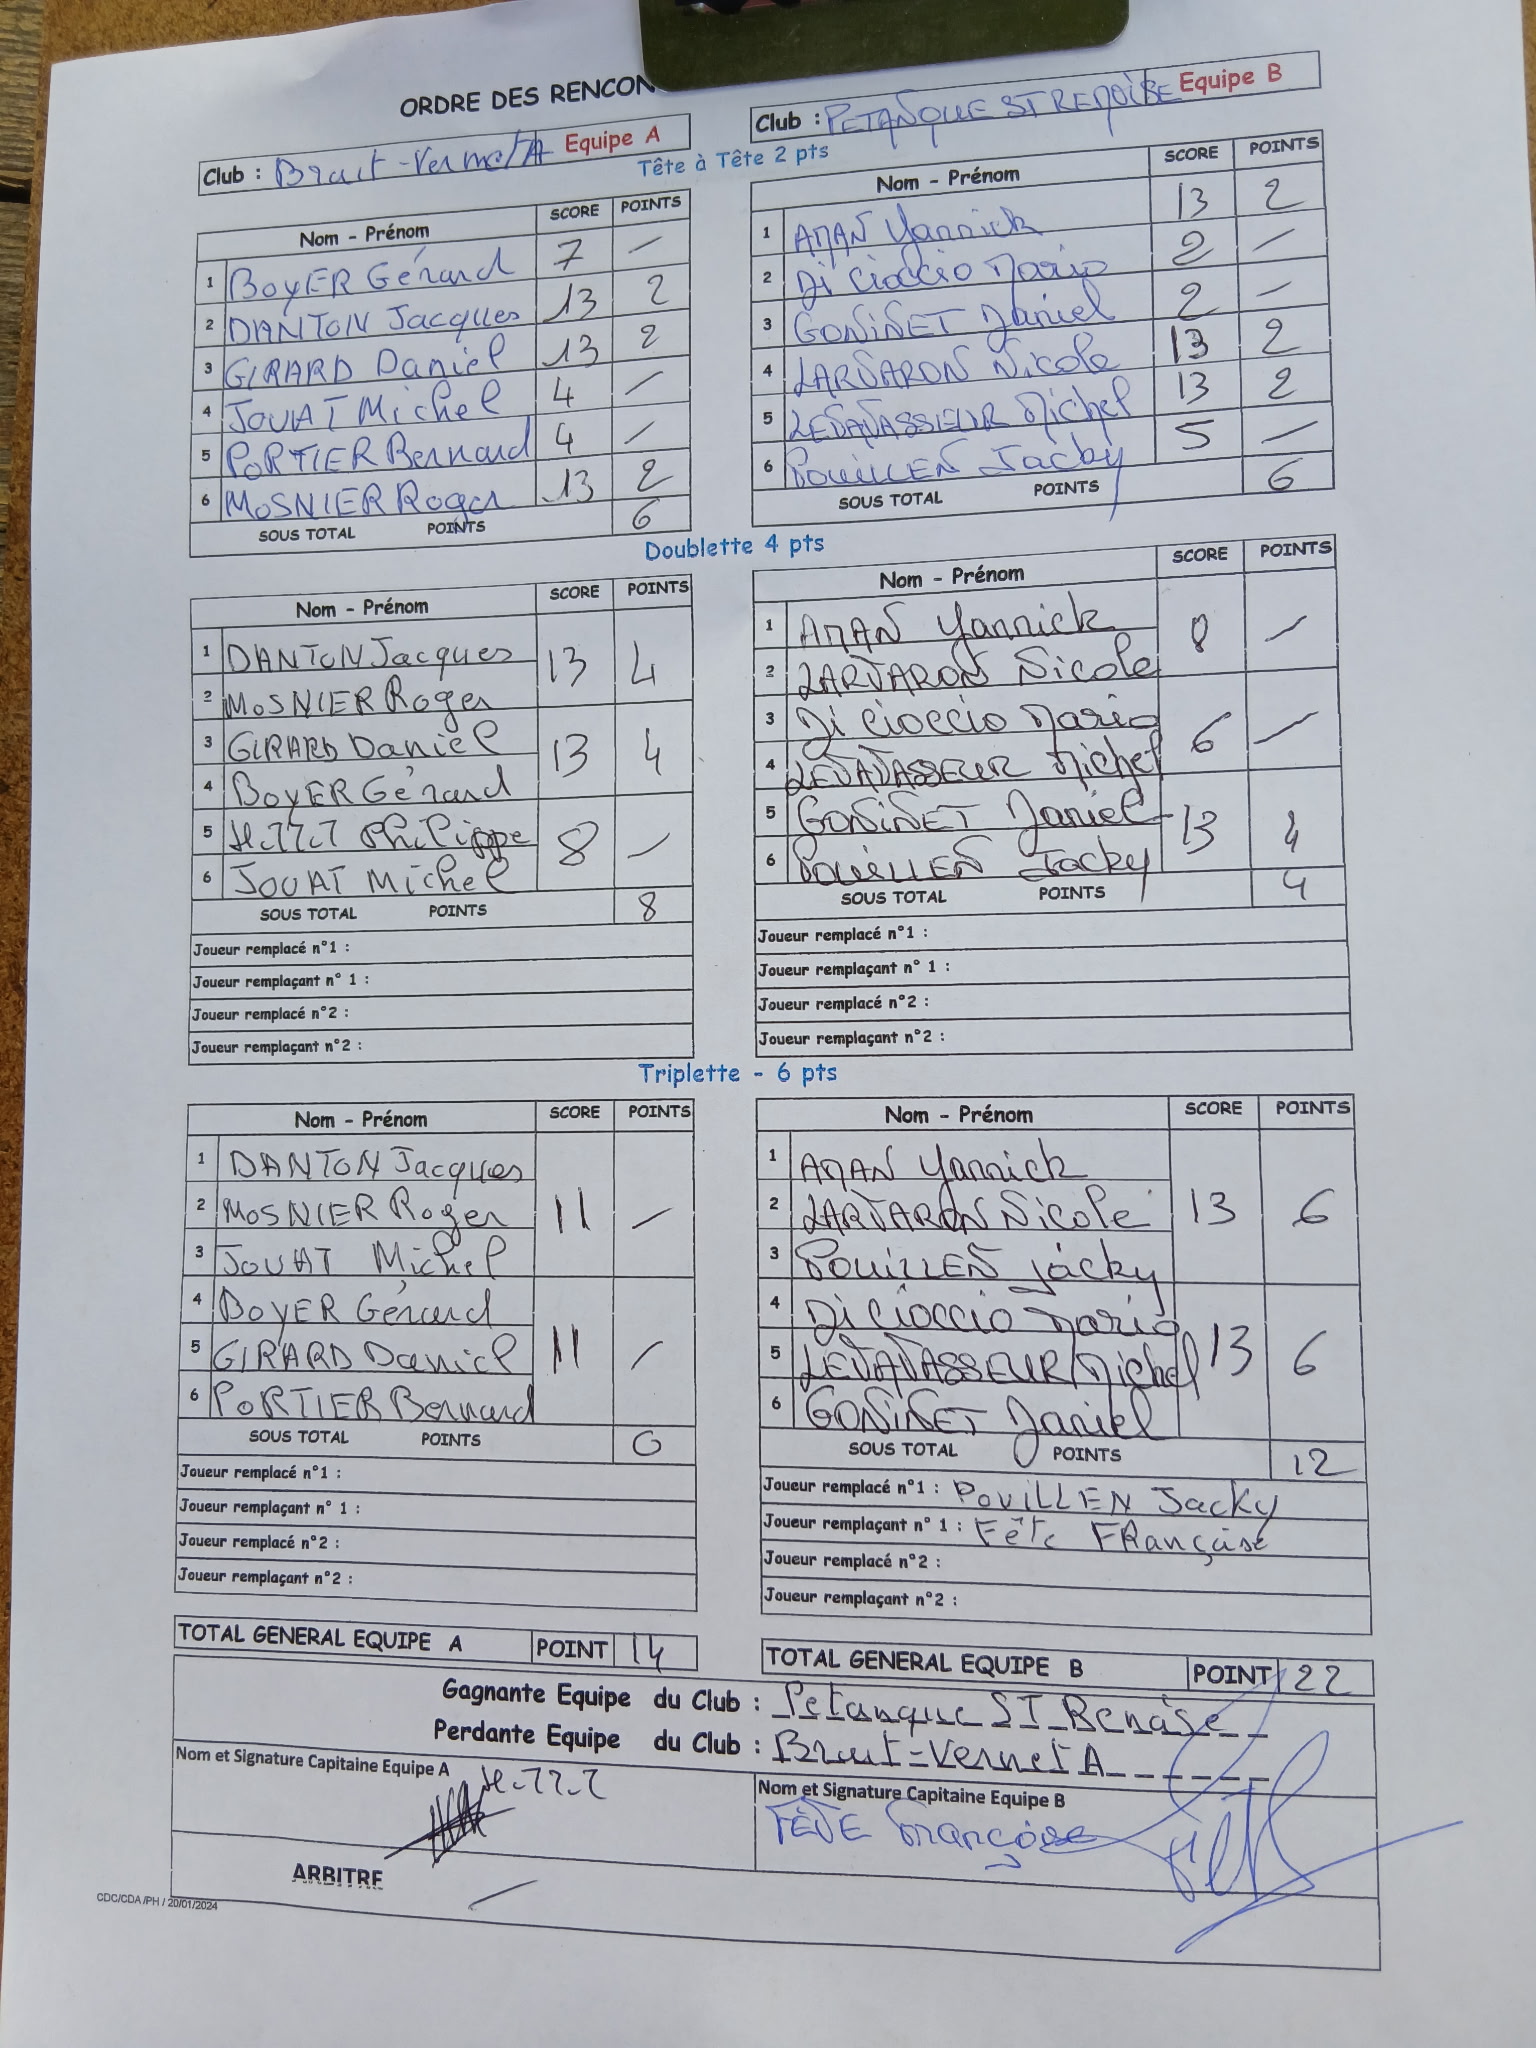 ORDRE DES RENCON
Club : Equipe A
Club : PETANQUE ST Equipe B
Tête à Tête 2 pts
Nom - Prénom SCORE POINTS
1 BOYER Gérard 7 —
2 DANTON Jacques 13 2
3 GIRARD Daniel 13 2
4 JOUAT Michel 4 —
5 PORTIER Bernard 4 —
6 MOSNIER Roger 13 2
SOUS TOTAL POINTS 6
Nom - Prénom SCORE POINTS
1 AMAN Yannick 13 2
2 Di Cioccio Mario 2 —
3 GONINET Daniel 2 —
4 LARVARON Nicole 13 2
5 LEVAVASSEUR Michel 13 2
6 POUILLEN Jacky 5 —
SOUS TOTAL POINTS 6
Doublette 4 pts
Nom - Prénom SCORE POINTS
1 DANTON Jacques 13 4
2 MOSNIER Roger
3 GIRARD Daniel 13 4
4 BOYER Gérard
5 Philippe 8 —
6 JOUAT Michel
SOUS TOTAL POINTS 8
Joueur remplacé n°1 :
Joueur remplaçant n° 1 :
Joueur remplacé n°2 :
Joueur remplaçant n°2 :
Nom - Prénom SCORE POINTS
1 AMAN Yannick 8 —
2 LARVARON Nicole
3 Di Cioccio Mario 6 —
4 LEVAVASSEUR Michel
5 GONINET Daniel 13 4
6 POUILLEN Jacky
SOUS TOTAL POINTS 4
Joueur remplacé n°1 :
Joueur remplaçant n° 1 :
Joueur remplacé n°2 :
Joueur remplaçant n°2 :
Triplette - 6 pts
Nom - Prénom SCORE POINTS
1 DANTON Jacques 11 —
2 MOSNIER Roger
3 JOUAT Michel
4 BOYER Gérard 11 —
5 GIRARD Daniel
6 PORTIER Bernard
SOUS TOTAL POINTS 0
Joueur remplacé n°1 :
Joueur remplaçant n° 1 :
Joueur remplacé n°2 :
Joueur remplaçant n°2 :
Nom - Prénom SCORE POINTS
1 AMAN Yannick 13 6
2 LARVARON Nicole
3 POUILLEN jacky
4 Di Cioccio Mario 13 6
5 LEVAVASSEUR Michel
6 GONINET Daniel
SOUS TOTAL POINTS 12
Joueur remplacé n°1 : POUILLEN Jacky
Joueur remplaçant n° 1 : Fête FRançoise
Joueur remplacé n°2 :
Joueur remplaçant n°2 :
TOTAL GENERAL EQUIPE A POINT 14
TOTAL GENERAL EQUIPE B POINT 22
Gagnante Equipe du Club : Petanque ST
Perdante Equipe du Club : Vernet A
Nom et Signature Capitaine Equipe A
Nom et Signature Capitaine Equipe B
FÊTE Françoise
ARBITRE —
CDC/CDA /PH / 20/01/2024